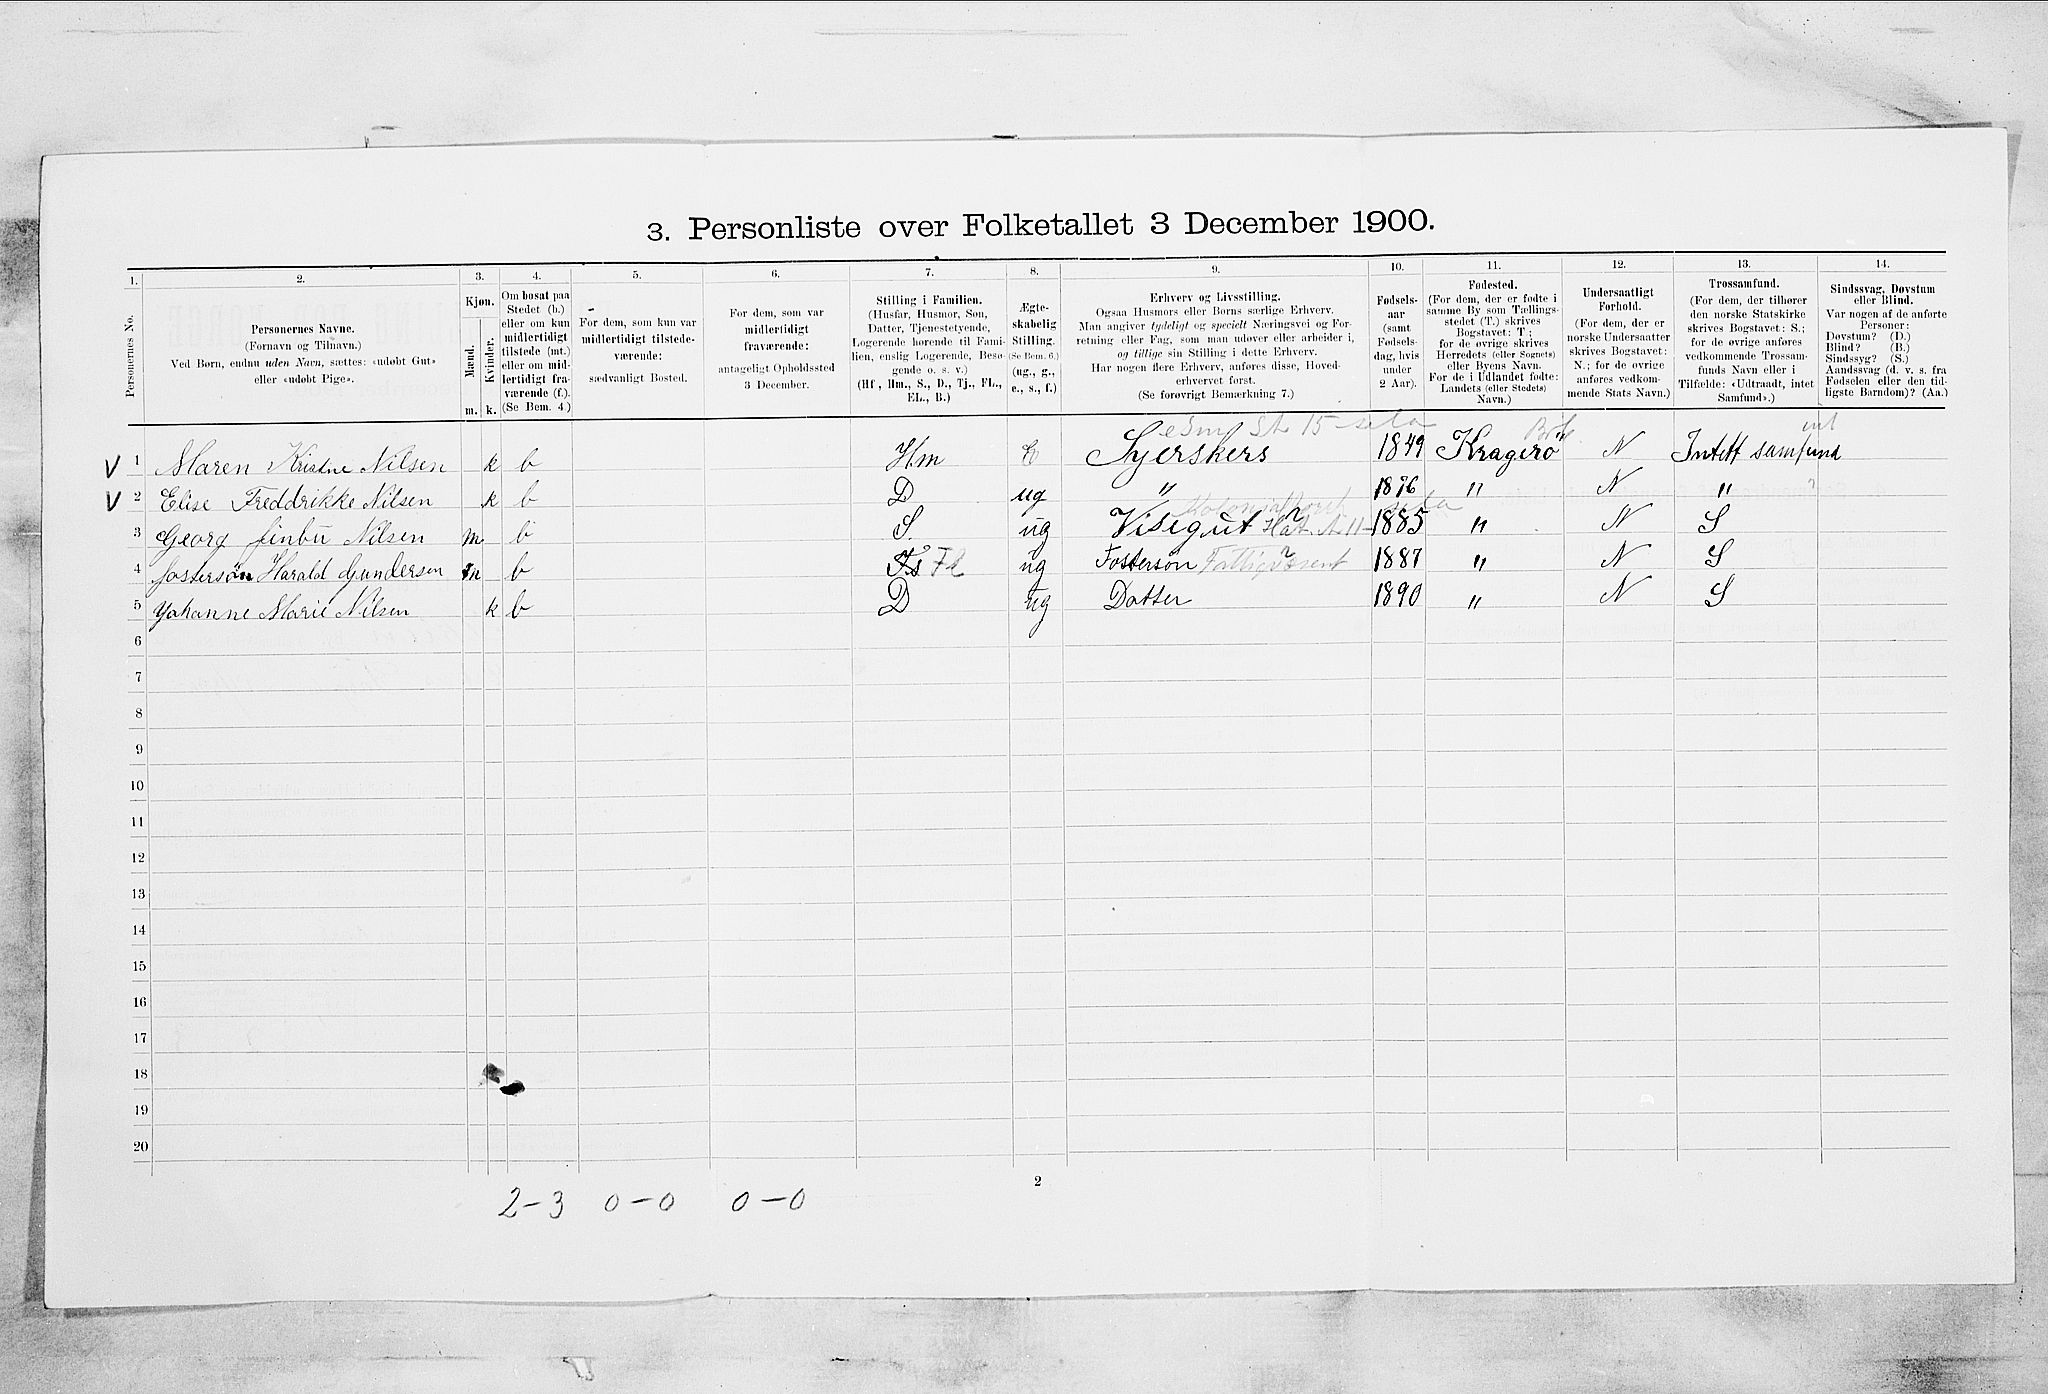 3. Personliste over Folketallet 3 December 1900.
1. 2. 3. 4. 5. 6. 7. 8. 9. 10. 11. 12. 13. 14.
Personernes No.
Personernes Navne.
(Fornavn og Tilnavn.)
Ved Børn, endnu uden Navn, sættes: «udøbt Gut»
eller «udøbt Pige».
Kjøn.
Mænd.
Kvinder.
m. k.
Om bosat paa
Stedet (b.)
eller om kun
midlertidigt
tilstede (mt.)
eller om mid-
lertidigt fra-
værende (f.).
(Se Bem. 4.)
For dem, som kun var
midlertidigt tilstede-
værende:
sædvanligt Bosted.
For dem, som var
midlertidigt
fraværende:
antageligt Opholdssted
3 December.
Stilling i Familien.
(Husfar, Husmor, Søn,
Datter, Tjenestetyende,
Logerende hørende til Fami-
lien, enslig Logerende, Besø-
gende o. s. v.)
(Hf., Hm., S., D., Tj., FL.,
EL., B.)
Ægte-
skabelig
Stilling.
(Se Bem. 6.)
(ug., g.,
e., s., f.)
Erhverv og Livsstilling.
Ogsaa Husmors eller Børns særlige Erhverv.
Man angiver tydeligt og specielt Næringsvei og For-
retning eller Fag, som man udøver eller arbeider i,
og tillige sin Stilling i dette Erhverv.
Har nogen flere Erhverv, anføres disse, Hoved-
erhvervet først.
(Se forøvrigt Bemærkning 7.)
Fødsels-
aar
(samt
Fødsels-
dag, hvis
under
2 Aar).
Fødested.
(For dem, der er fødte i
samme By som Tællings-
stedet (T.) skrives
Bogstavet: T.;
for de øvrige skrives
Herredets (eller Sognets)
eller Byens Navn.
For de i Udlandet fødte:
Landets (eller Stedets)
Navn.)
Undersaatligt
Forhold.
(For dem, der er
norske Undersaatter
skrives Bogstavet:
N.; for de øvrige
anføres vedkom-
mende Stats Navn.)
Trossamfund.
(For dem, der tilhører
den norske Statskirke
skrives Bogstavet: S.;
for de øvrige anføres
vedkommende Trossam-
funds Navn eller i
Tilfælde: «Udtraadt, intet
Samfund».)
Sindssvag, Døvstum
eller Blind.
Var nogen af de anførte
Personer:
Døvstum? (D.)
Blind? (B.)
Sindssyg? (S.)
Aandssvag (d. v. s. fra
Fødselen eller den tid-
ligste Barndom)? (Aa.)
V 1 Maren Kristne Nilsen k b Hm E Syerskers 1849 Kragerö N Intett samfund
V 2 Elise Freddrikke Nilsen k b D ug " 1876 " N "
3 Georg Finbu Nilsen m b S. ug Visegut 1885 " N S
4 fostersön Harald Gundersen m b Fs Fl ug Fosterson 1887 " N S
5 Yohanne Marie Nilsen k b D ug Datter 1890 " N S
6
7
8
9
10
11
12
13
14
15
16
17
18
19
20
2
2-3 0-0 0-0